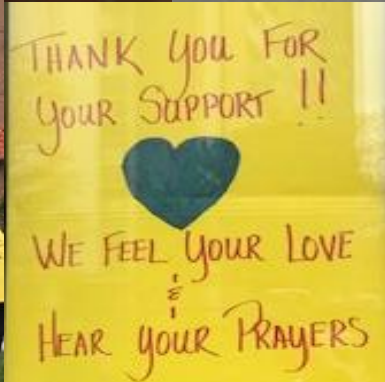 THANK YOU FOR
YOUR SUPPORT !!
WE FEEL YOUR LOVE
&
HEAR YOUR PRAYERS